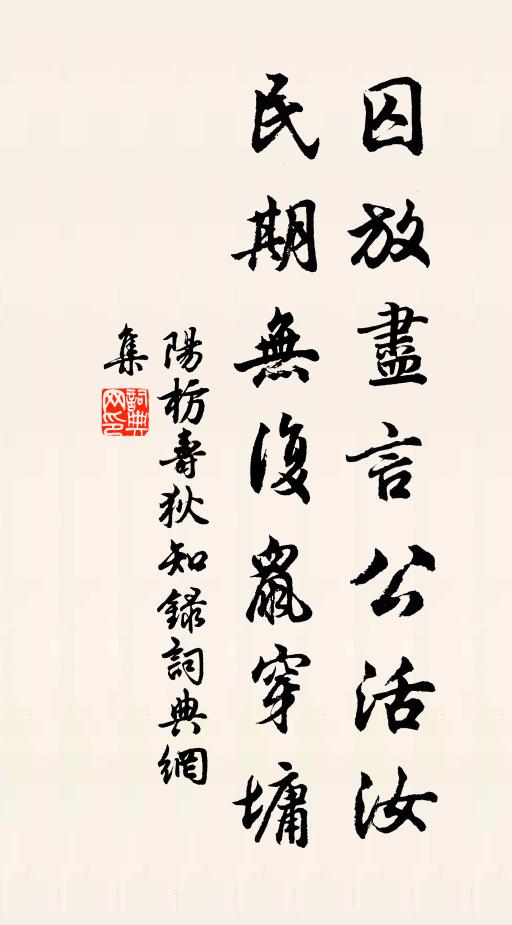 囚放盡言公活汝
民期無復鼠穿墉
陽枋壽狄知錄詞典網
集
詞典網印